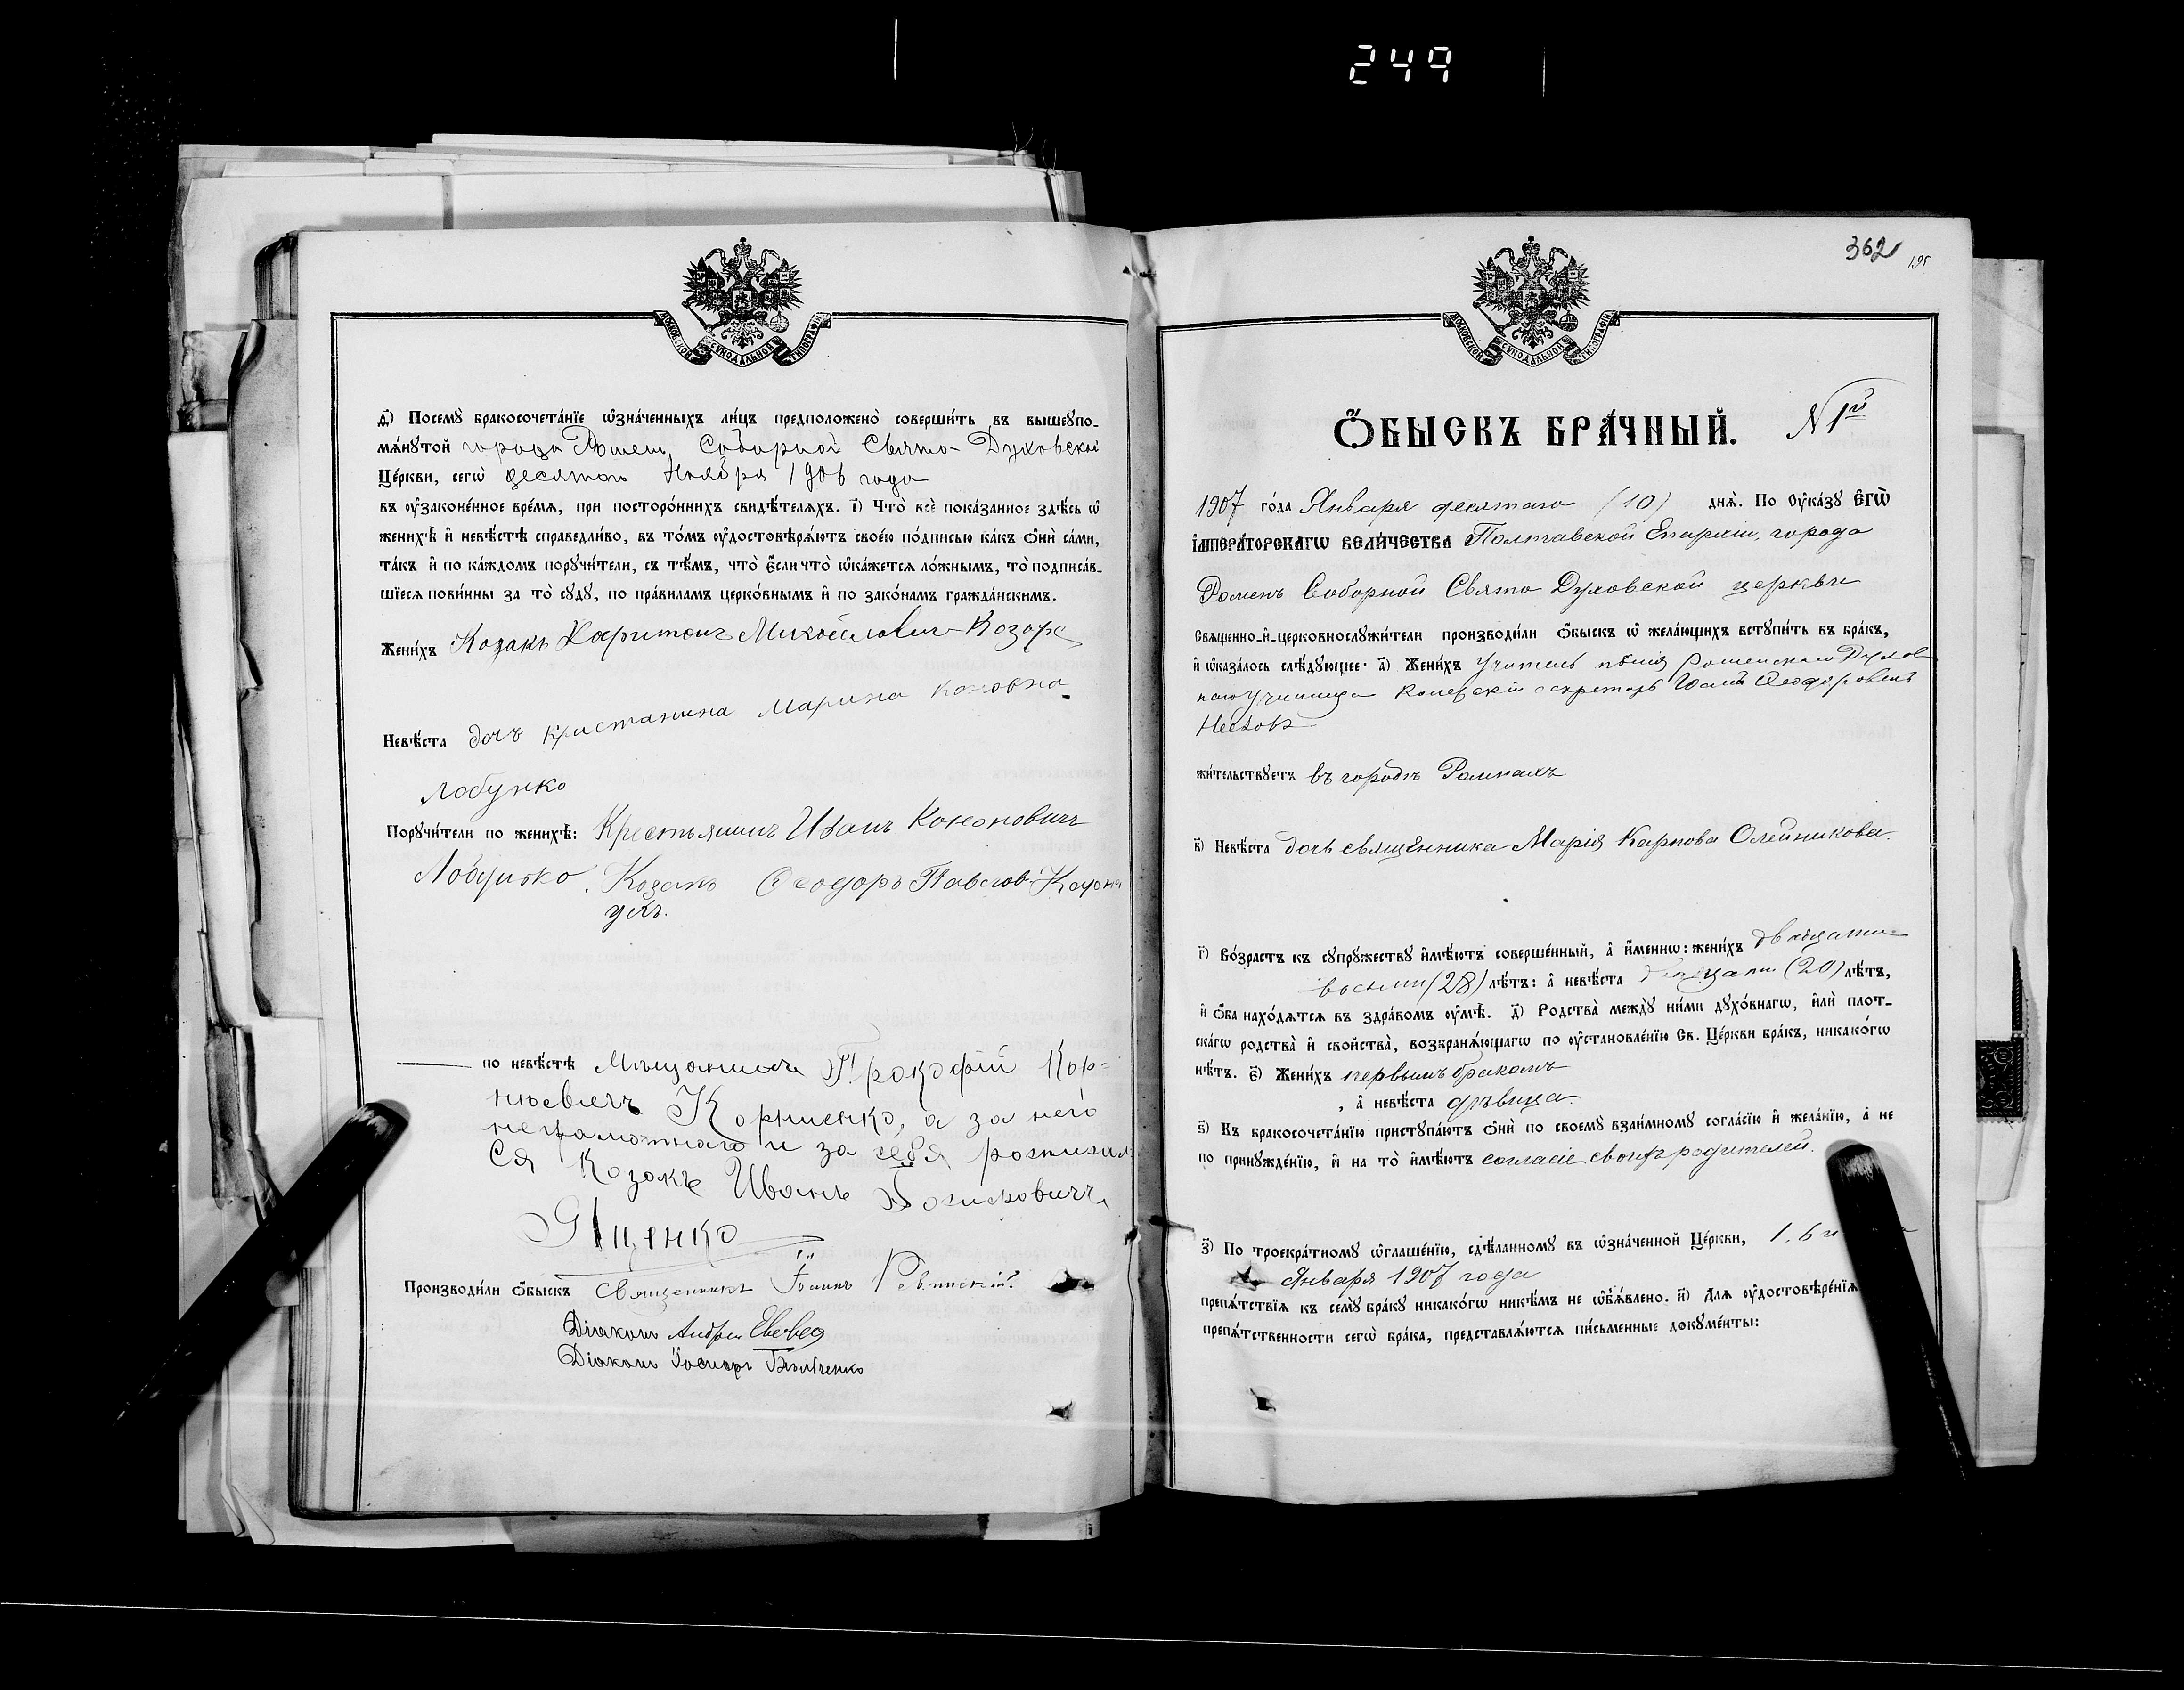 249
МОСКОВСКОЙ СѴНОДАЛЬНОЙ ТИПОГРАФІИ
д҃) Посемꙋ бракосочета́нїе ѡ҆зна́ченныхъ ли́цъ предположено̀ соверши́ть въ вышеꙋпо-
мѧ́нꙋтой города Ромен Соборной Свято-Духовской
Це́ркви, сегѡ̀ десятаго Ноября 1906 года
въ ᲂу҆зако́ненное вре́мѧ, при посторо́ннихъ свидѣ́телѧхъ. і҃) Что̀ всѐ пока́занное здѣ́сь ѡ҆
женихѣ̀ и҆ невѣ́стѣ справедли́во, въ то́мъ ᲂу҆достовѣрѧ́ютъ свое́ю по́дписью ка́къ ѻ҆нѝ са́ми,
та́къ и҆ по ка́ждомъ порꙋчи́тели, съ тѣ́мъ, что̀ є҆́сли что̀ ѡ҆ка́жетсѧ ло́жнымъ, то̀ подписа́в-
шїесѧ пови́нны за то̀ сꙋдꙋ̀, по пра́виламъ церко́внымъ и҆ по зако́намъ гражда́нскимъ.
Жени́хъ Козакъ Харитонъ Михайлович Козоре
Невѣ́ста дочъ кристанина Марина Коновна
Лобунко
Порꙋчи́тели по женихѣ̀: Крестьянинъ Иванъ Кононовичъ
Лобунко. Козакъ Феодоръ Павлов
по невѣ́стѣ Мѣщанинъ Прокофій Кор-
ніевичъ Корниенко, а за него
неграмотнаго и за себя росписал
ся Козакъ Иванъ
Яценко
Производи́ли ѻ҆́быскъ Священникъ Іоаннъ
Діаконъ Андрей
Діаконъ Іосифъ
362
195
МОСКОВСКОЙ СѴНОДАЛЬНОЙ ТИПОГРАФІИ
Ѻ҆́БЫСКЪ БРА́ЧНЫЙ. N 1й
1907 го́да Января десятаго (10) днѧ̀. По Оу҆ка́зꙋ Є҆ГѠ̀
І҆МПЕРА́ТОРСКАГѠ ВЕЛИ́ЧЕСТВА Полтавской Епархіи, города
Роменъ Соборной Свято Духовской церкви
Свѧще́нно-и҆-церковнослꙋжи́тели производи́ли ѻ҆́быскъ ѡ҆ жела́ющихъ встꙋпи́ть въ бра́къ,
и҆ ѡ҆каза́лось слѣ́дꙋющее· а҃) Жени́хъ Учитель пѣнія Роменскаго Духов
наго Училища Колежскій секретарь Іоаннъ Феодоровичъ
жи́тельствꙋетъ въ городѣ Ромнахъ
в҃) Невѣ́ста дочь священника Марія Карпова Олейникова.
г҃) Во́зрастъ къ сꙋпрꙋ́жествꙋ и҆мѣ́ютъ соверше́нный, а҆ и҆́меннѡ: жени́хъ двадцати
восьми (28) лѣ́тъ: а҆ невѣ́ста двадцати (20) лѣ́тъ,
и҆ ѻ҆́ба нахо́дѧтсѧ въ здра́вомъ ᲂу҆мѣ̀. д҃) Родства̀ междꙋ̀ ни́ми дꙋхо́внагѡ, и҆лѝ плот-
ска́гѡ родства̀ и҆ свойства̀, возбранѧ́ющагѡ по ᲂу҆становле́нїю Св. Це́ркви бра́къ, никако́гѡ
нѣ́тъ. є҃) Жени́хъ первымъ бракомъ
, а҆ невѣ́ста дѣвица.
ѕ҃) Къ бракосочета́нїю пристꙋпа́ютъ ѻ҆нѝ по своемꙋ̀ взаи́мномꙋ согла́сїю и҆ жела́нїю, а҆ не
по принꙋжде́нїю, и҆ на то̀ и҆мѣ́ютъ согласіе своихъ родителей.
з҃) По троекра́тномꙋ ѡ҆глаше́нїю, сдѣ́ланномꙋ въ ѡ҆зна́ченной Це́ркви, 1, 6 и
Января 1907 года
препѧ́тствїѧ къ семꙋ̀ бра́кꙋ никако́гѡ никѣ́мъ не ѡ҆б̾ѧ́влено. и҃) Длѧ ᲂу҆достовѣре́нїѧ
препѧ́тственности сегѡ̀ бра́ка, представлѧ́ютсѧ пи́сьменные докꙋме́нты: